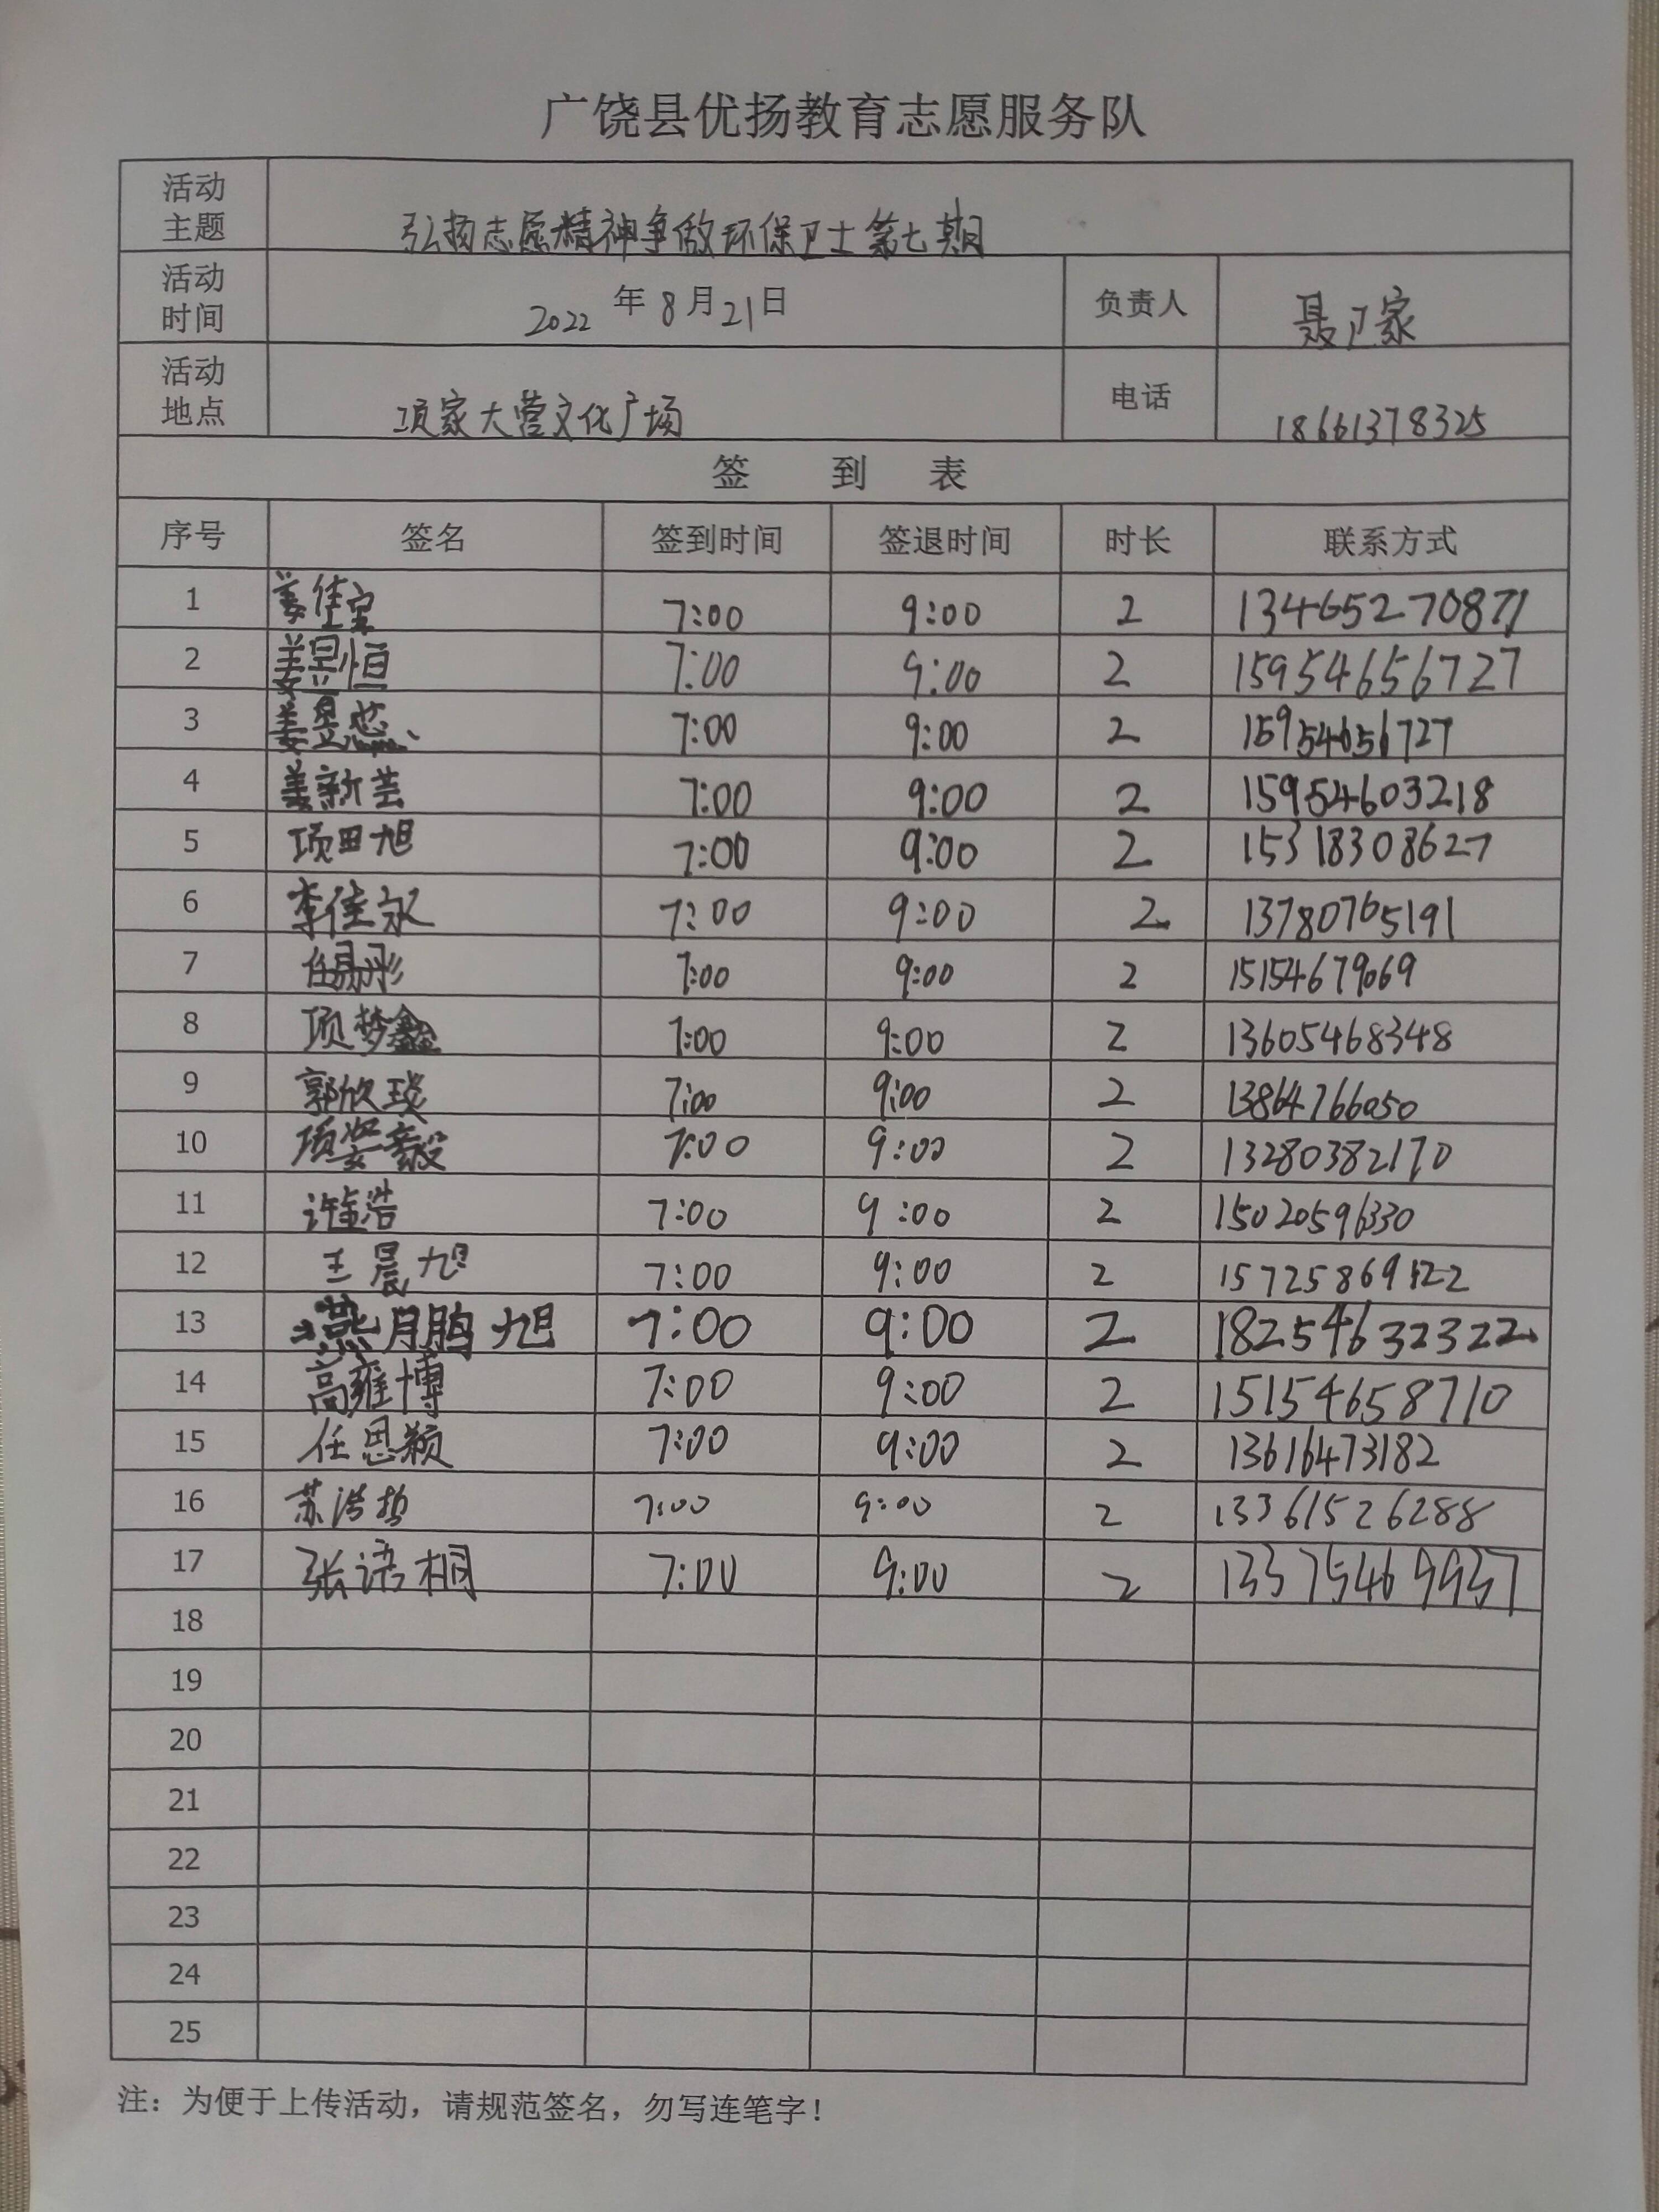 广饶县优扬教育志愿服务队
活动主题 弘扬志愿精神争做环保卫士第七期
活动时间 2022年8月21日 负责人 聂卫家
活动地点 项家大营文化广场 电话 18661378325
签到表
序号 签名 签到时间 签退时间 时长 联系方式
1 姜佳宝 7:00 9:00 2 13465270871
2 姜昱恒 7:00 9:00 2 15954656727
3 姜昱 7:00 9:00 2 15954656727
4 姜新芸 7:00 9:00 2 15954603218
5 项田旭 7:00 9:00 2 15318308627
6 李佳永 7:00 9:00 2 13780765191
7 任 彤 7:00 9:00 2 15154679069
8 项梦鑫 7:00 9:00 2 13605468348
9 郭欣琰 7:00 9:00 2 13864766050
10 项姿毅 7:00 9:00 2 13280382170
11 许 浩 7:00 9:00 2 15020596330
12 王晨旭 7:00 9:00 2 15725869122
13 燕月鹏旭 7:00 9:00 2 18254632322
14 高雍博 7:00 9:00 2 15154658710
15 任恩颖 7:00 9:00 2 13616473182
16 苏浩哲 7:00 9:00 2 13361526288
17 张语桐 7:00 9:00 2 13375469937
18
19
20
21
22
23
24
25
注：为便于上传活动，请规范签名，勿写连笔字！